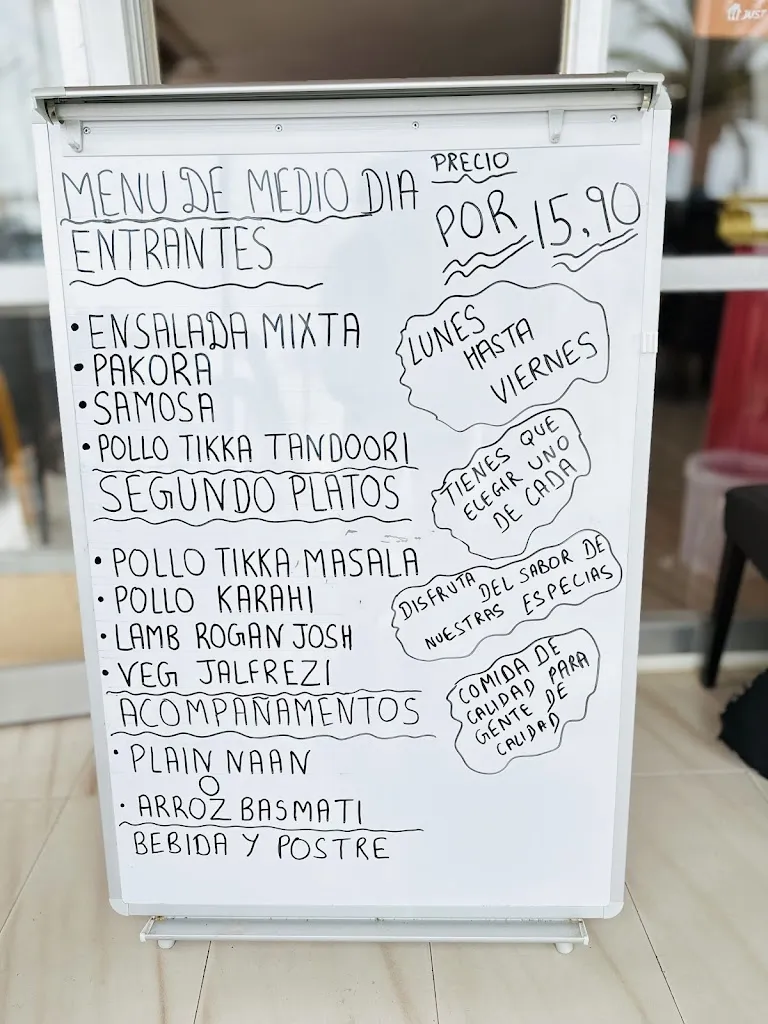 MENU DE MEDIO DIA
PRECIO
POR 15,90
ENTRANTES
• ENSALADA MIXTA
• PAKORA
• SAMOSA
• POLLO TIKKA TANDOORI
LUNES
HASTA
VIERNES
SEGUNDO PLATOS
TIENES QUE
ELEGIR UNO
DE CADA
• POLLO TIKKA MASALA
• POLLO KARAHI
• LAMB ROGAN JOSH
• VEG JALFREZI
DISFRUTA DEL SABOR DE
NUESTRAS ESPECIAS
ACOMPAÑAMENTOS
• PLAIN NAAN
O
• ARROZ BASMATI
BEBIDA Y POSTRE
COMIDA DE
CALIDAD PARA
GENTE DE
CALIDAD
JUST